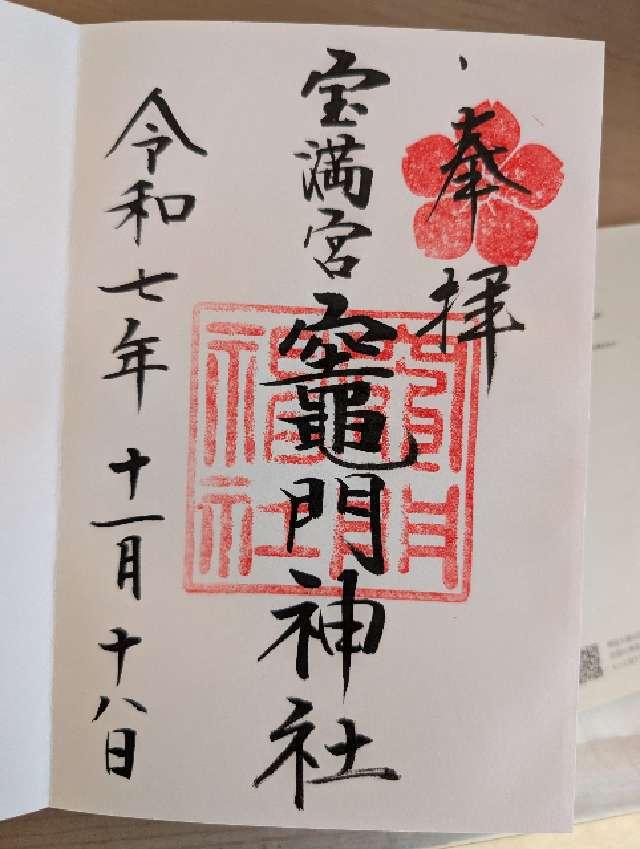 奉拝
宝満宮竈門神社
令和七年十一月十八日